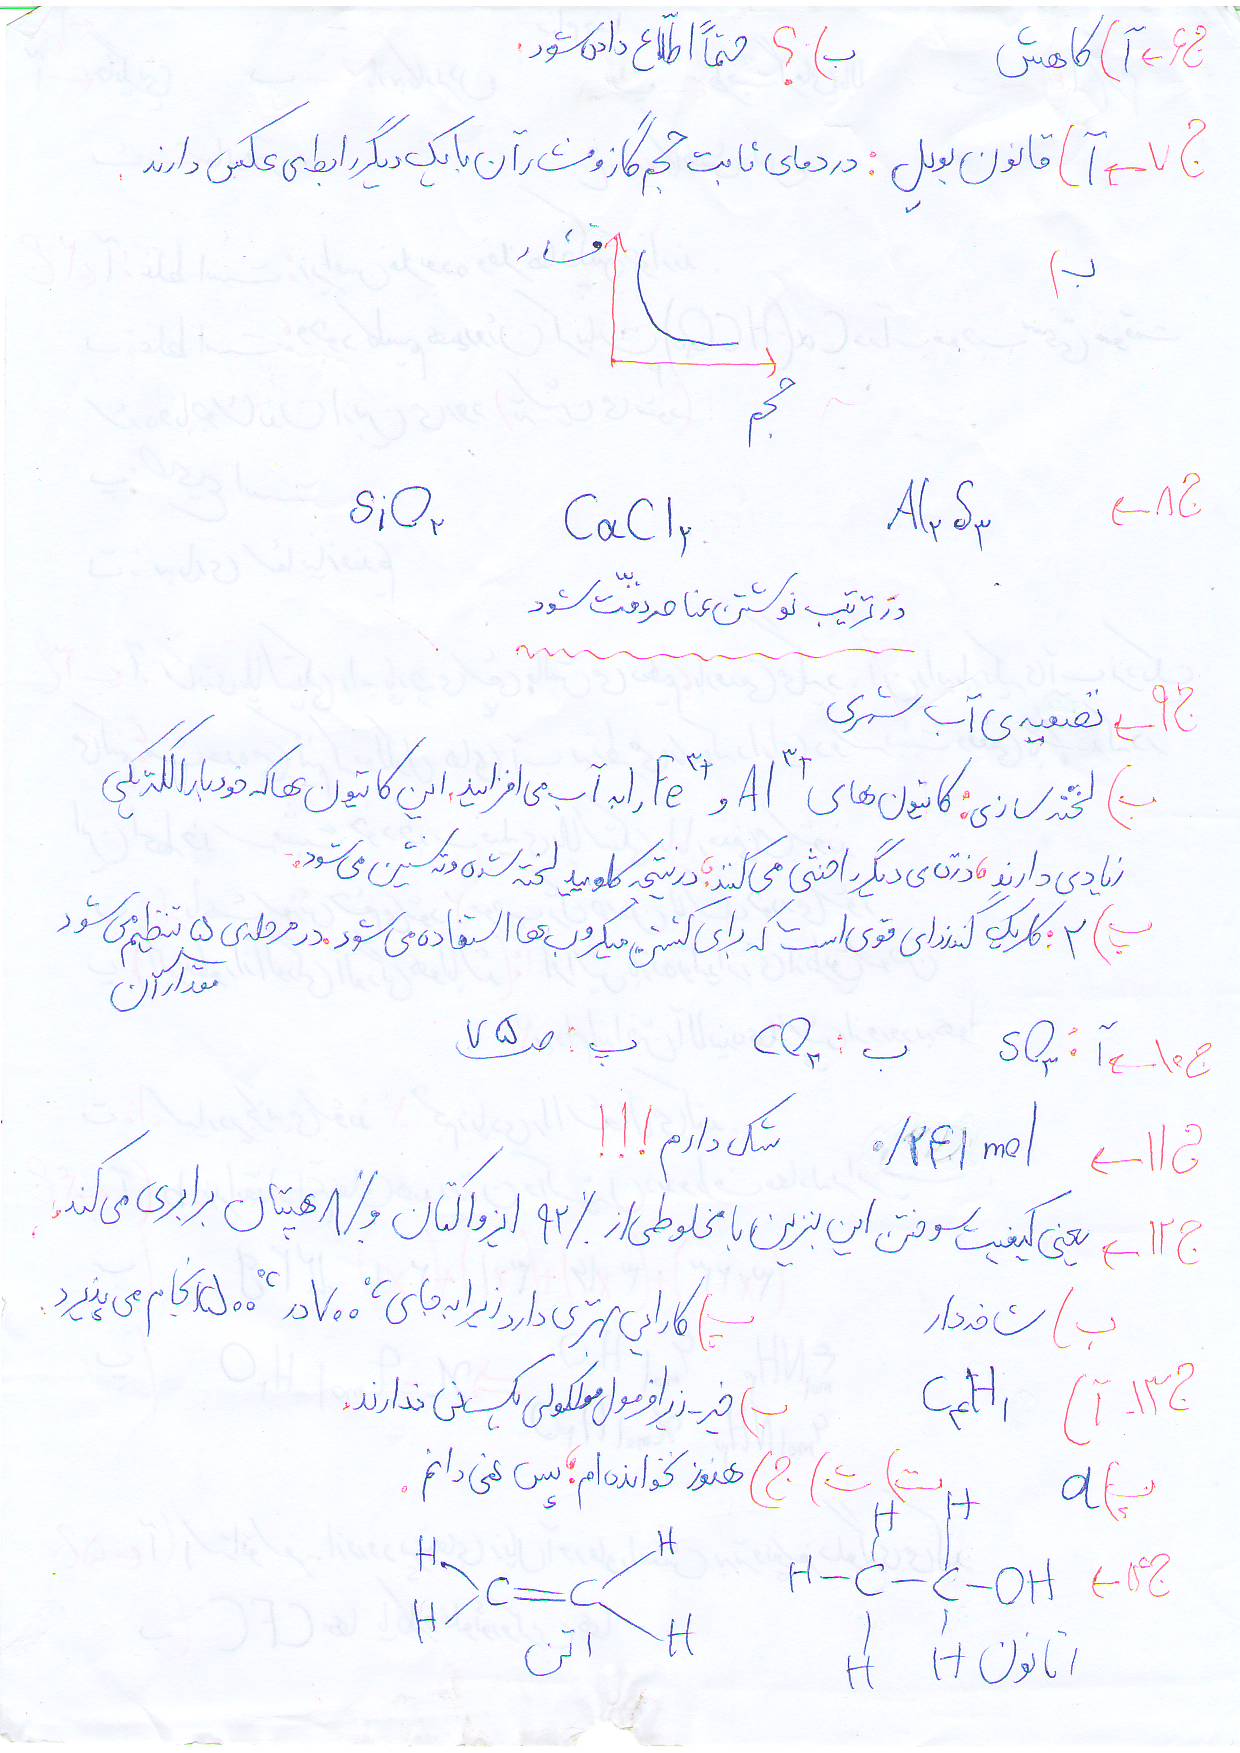 ج۶← آ) کاهش ب) ؟ حتماً اطّلاع داده شود.
ج۷← آ) قانون بویل: در دمای ثابت حجم گاز و فشار آن با یک دیگر رابطه‌ی عکس دارند.
ب)
فشار
حجم
ج۸← Al۲S۳ CaCl۲ SiO۲
در ترتیب نوشتن عناصر دقّت شود
ج۹← تصفیه‌ی آب شهری
ب) لخته سازی: کاتیون های Al۳+ و Fe۳+ را به آب می افزایند. این کاتیون ها که خود بار الکتریکی
زیادی دارند، ذرّه‌ی دیگر را خنثی می کنند؛ در نتیجه کلویید لخته شده و ته نشین می شود.
پ) ۲: کلر یک گندزدای قوی است که برای کشتن میکروب ها استفاده می شود. در مرحله‌ی ۵ تنظیم می شود
مقدار آن
ج۱۰← آ: SO۳ ب: CO۲ پ: ص ۷۵
ج۱۱← ۰/۲۴۱ mol شک دارم !!!
ج۱۲← یعنی کیفیت سوختن این بنزین با مخلوطی از ۹۲٪ ایزواکتان و ۸٪ هپتان برابری می کند.
ب) شاخه دار پ) کارایی بهتری دارد زیرا به جای ۷۰۰° در ۵۰۰° انجام می پذیرد.
ج۱۳- آ) ب) خیر - زیرا فرمول مولکولی یکسانی ندارند.
پ) a ت) ث) ج) هنوز نخوانده ام؛ پس نمی دانم.
ج۱۴←
H H
H – C – C – OH
H H
اتانون
H H
C = C
H H
اتن